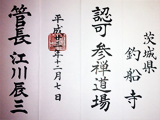 茨城県
釣船寺
認可 参禅道場
平成廿三年十二月七日
管長 江川辰三